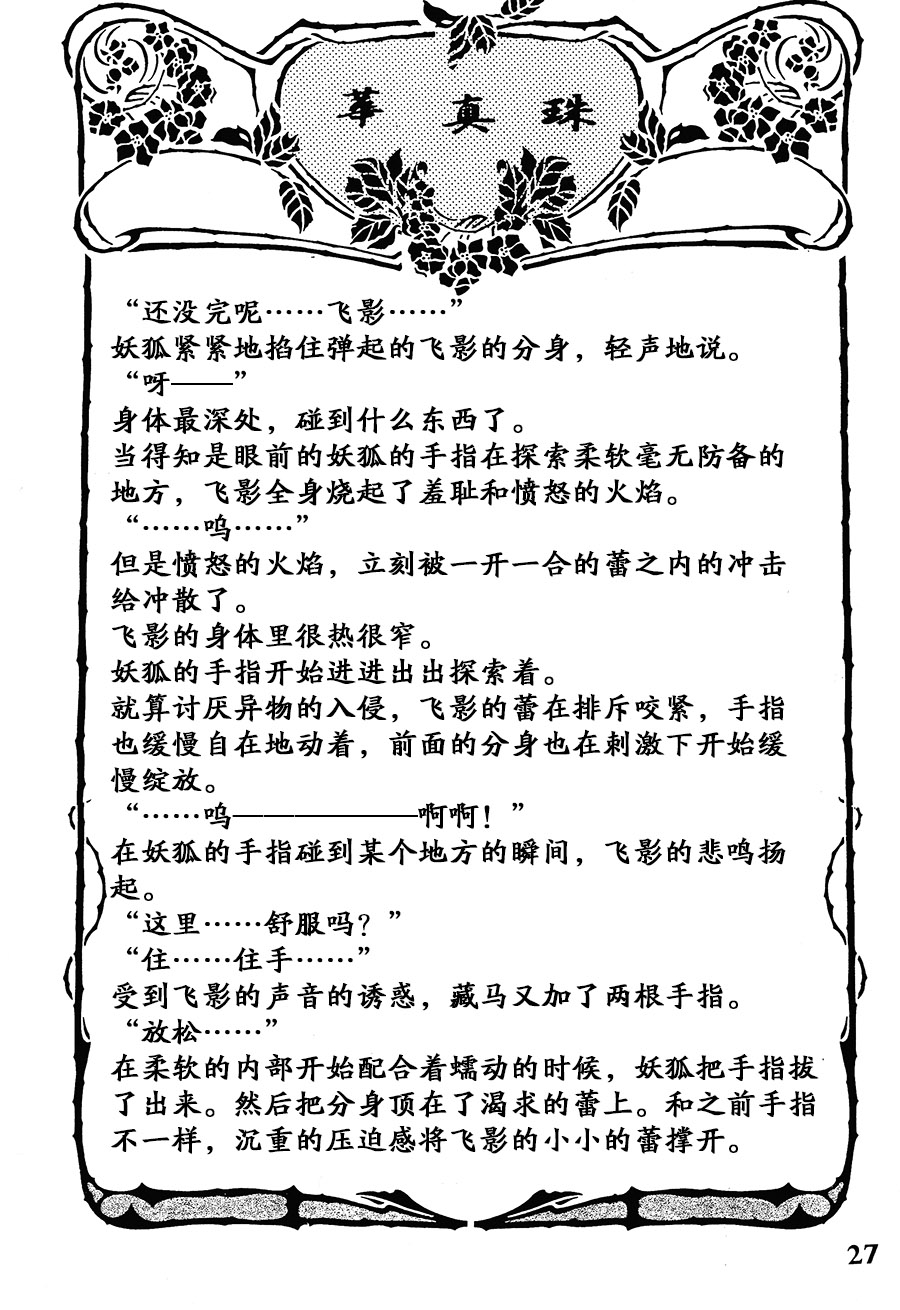 華 真 珠
“还没完呢……飞影……”
妖狐紧紧地掐住弹起的飞影的分身，轻声地说。
“呀——”
身体最深处，碰到什么东西了。
当得知是眼前的妖狐的手指在探索柔软毫无防备的
地方，飞影全身烧起了羞耻和愤怒的火焰。
“……呜……”
但是愤怒的火焰，立刻被一开一合的蕾之内的冲击
给冲散了。
飞影的身体里很热很窄。
妖狐的手指开始进进出出探索着。
就算讨厌异物的入侵，飞影的蕾在排斥咬紧，手指
也缓慢自在地动着，前面的分身也在刺激下开始缓
慢绽放。
“……呜——————啊啊！”
在妖狐的手指碰到某个地方的瞬间，飞影的悲鸣扬
起。
“这里……舒服吗？”
“住……住手……”
受到飞影的声音的诱惑，藏马又加了两根手指。
“放松……”
在柔软的内部开始配合着蠕动的时候，妖狐把手指拔
了出来。然后把分身顶在了渴求的蕾上。和之前手指
不一样，沉重的压迫感将飞影的小小的蕾撑开。
27